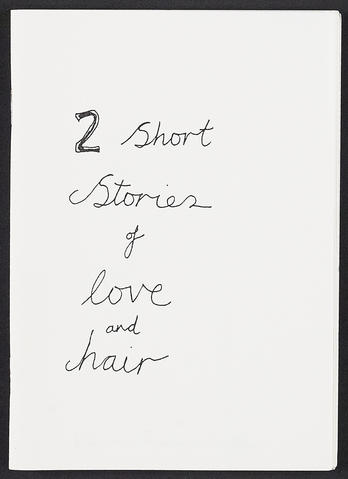 2 Short
Stories
of
love
and
hair